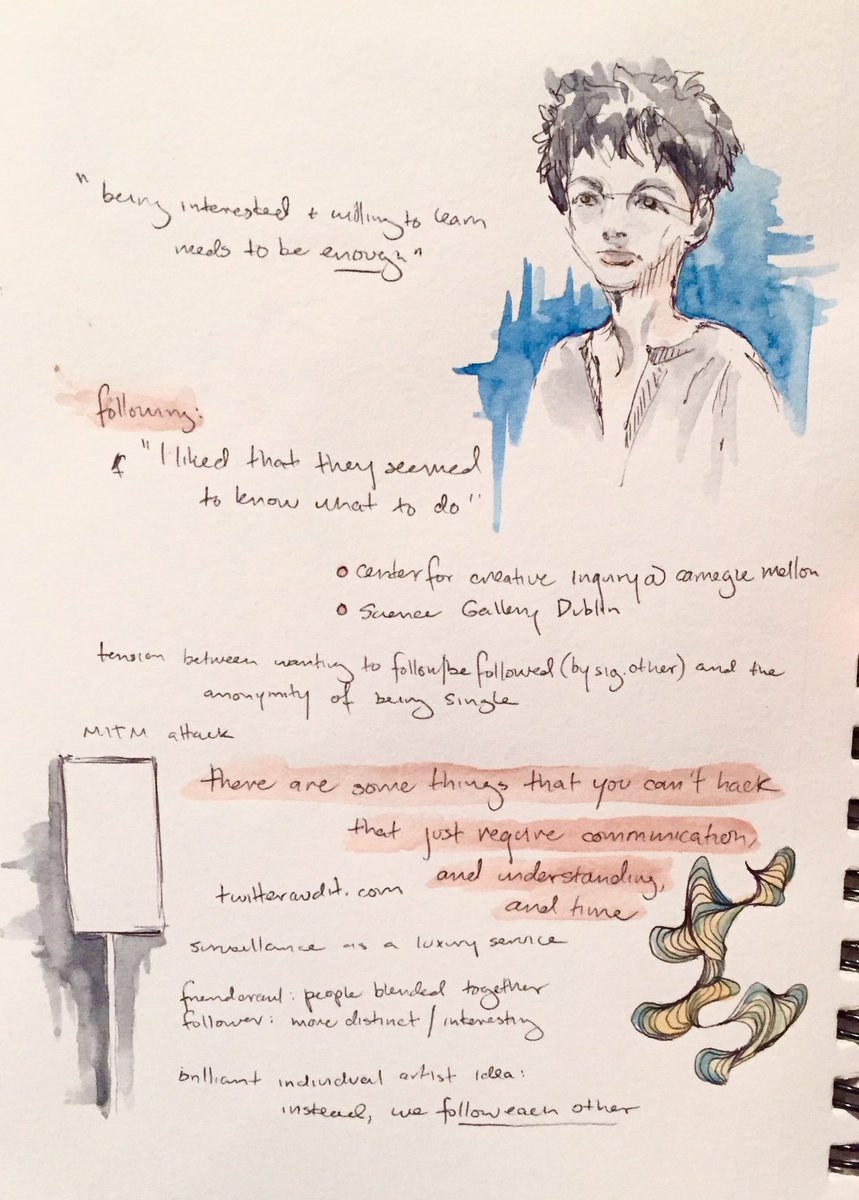 "being interested + willing to learn
needs to be enough"
following:
"I liked that they seemed
to know what to do"
• center for creative inquiry @ carnegie mellon
• Science Gallery Dublin
tension between wanting to follow/be followed (by sig. other) and the
anonymity of being single
MITM attack
there are some things that you can't hack
that just require communication,
and understanding,
and time
twitteraudit.com
surveillance as a luxury service
friendcrawl: people blended together
follower: more distinct / interesting
brilliant individual artist idea:
instead, we follow each other